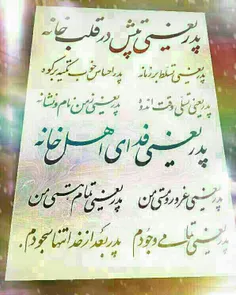 پدر یعنی تپش در قلب خانه
پدر یعنی تسلط بر زمانه
پدر احساس خوب تکیه بر کوه
پدر یعنی تسلی وقت اندوه
پدر یعنی ز من نام و نشانه
پدر یعنی فدای اهل خانه
پدر یعنی غرور و مستی من
پدر یعنی تمام هستی من
پدر یعنی تمامی وجودم
پدر بعد از خدا تنها سجودم